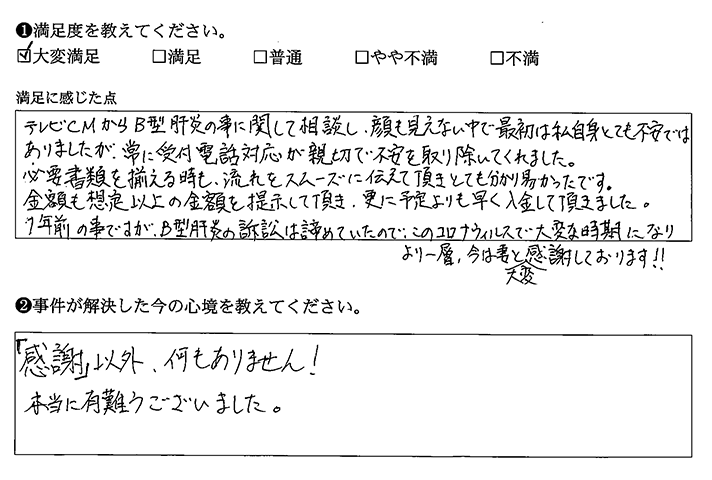 ❶満足度を教えてください。
☑大変満足 □満足 □普通 □やや不満 □不満
満足に感じた点
テレビCMからB型肝炎の事に関して相談し、顔も見えない中で最初は私自身とても不安では
ありましたが、常に受付電話対応が親切で不安を取り除いてくれました。
必要書類を揃える時も、流れをスムーズに伝えて頂きとても分かり易かったです。
金額も想定以上の金額を提示して頂き、更に予定よりも早く入金して頂きました。
7年前の事ですが、B型肝炎の訴訟は諦めていたので、このコロナウィルスで大変な時期になり
より一層、今は妻と大変感謝しております!!
❷事件が解決した今の心境を教えてください。
「感謝」以外、何もありません!
本当に有難うございました。